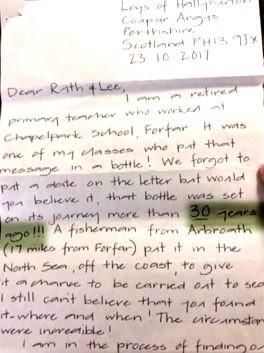 Leys of Hallyburton
Coupar Angus
Perthshire
Scotland PH13 9JX
23.10.2017
Dear Ruth & Lee,
I am a retired
primary teacher who worked at
Chapelpark School, Forfar It was
one of my classes who put that
message in a bottle! We forgot to
put a date on the letter but would
you believe it, that bottle was set
on its journey more than 30 years
ago!!! A fisherman from Arbroath
(17 miles from Forfar) put it in the
North Sea, off the coast, to give
it a chance to be carried out to sea
I still can't believe that you found
it-where and when! The circumstan
were incredible!
I am in the process of finding o